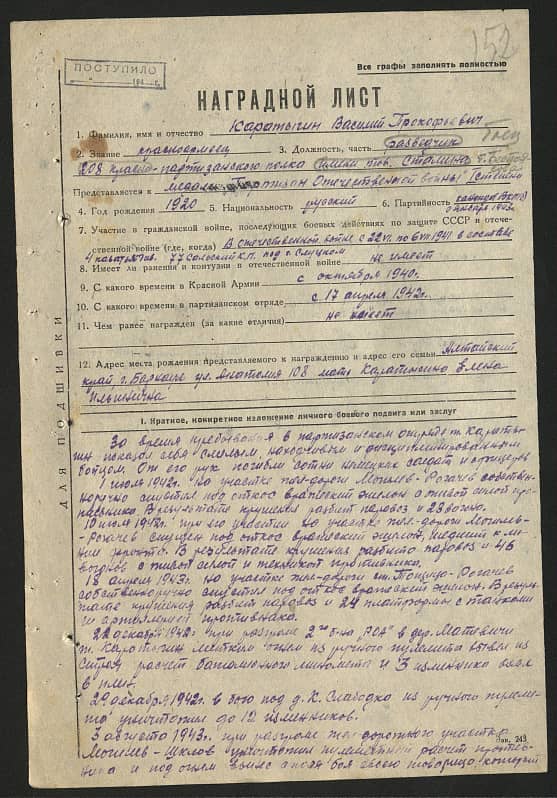 152
Все графы заполнять полностью
ПОСТУПИЛО
194 г.
НАГРАДНОЙ ЛИСТ
1. Фамилия, имя и отчество Каратыгин Василий Прокофьевич
2. Звание красноармеец 3. Должность, часть разведчик боец
208 красно-партизанского полка имени тов. Сталина
Представляется к медали партизан Отечественной войны I степени
4. Год рождения 1920 5. Национальность русский 6. Партийность кандидат ВКП(б)
7. Участие в гражданской войне, последующих боевых действиях по защите СССР и отече-
ственной войне (где, когда) В отечественной войне с 22 VI по 6 VII 1941 в составе
4 77 к.п. под г. Слуцком
8. Имеет ли ранения и контузии в отечественной войне не имеет
9. С какого времени в Красной Армии с октября 1940г.
10. С какого времени в партизанском отряде с 17 апреля 1942г.
11. Чем ранее награжден (за какие отличия) не имеет
12. Адрес места рождения представляемого к награждению и адрес его семьи Алтайский
край г. ул. Анатолия 108 мать Каратыгина Елена
Ильинична
ДЛЯ ПОДШИВКИ
I. Краткое, конкретное изложение личного боевого подвига или заслуг
За время пребывания в партизанском отряде т. Караты-
гин показал себя смелым, находчивым и дисциплинированным
бойцом. От его рук погибли сотни немецких солдат и офицеров
1 июля 1942г. на участке жел-дороги Могилев-Рогачев собствен-
норучно спустил под откос вражеский эшелон с живой силой про-
тивника. В результате крушения разбит паровоз и 23 вагона.
10 июля 1942г. при его участии на участке жел-дороги Могилев-
-Рогачев спущен под откос вражеский эшелон, шедший к ли-
нии фронта. В результате крушения разбито паровоз и 46
вагонов с живой силой и техникой противника.
18 апреля 1943г. на участке жел-дороги ст. Тощица-Рогачев
собственноручно спустил под откос вражеский эшелон. В резуль-
тате крушения разбит паровоз и 24 платформы с танками
и артиллерией противника.
22 декабря 1942г. при разгроме 2го б-на "РОА" в дер. Матевичи
т. Каратыгин метким огнем из ручного пулемета вывел из
строя расчет батальонного миномета и 3 изменника взял
в плен.
29 декабря 1942г. в бою под д. К. Слободка из ручного пулеме-
та уничтожил до 12 изменников.
3 августа 1943г. при разгроме жел-дорожного участка
Могилев-Шклов уничтожил пулеметный расчет против-
ника и под огнем вынес с поля боя своего товарища, который
Зак. 243